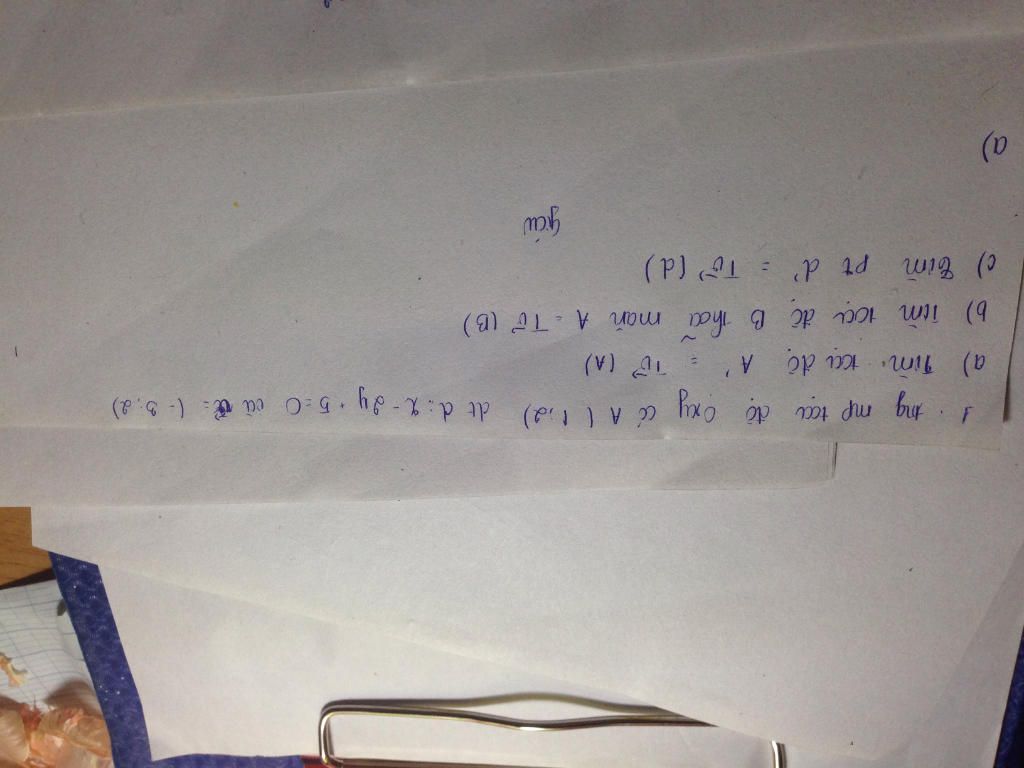 1. trg mp tọa độ Oxy có A (1;2) dt d: x - 2y + 5 = 0 và v⃗ = (-3;2)
a) Tìm tọa độ A' = Tv⃗ (A)
b) tìm tọa độ B thỏa mãn A = Tv⃗ (B)
c) Tìm pt d' = Tv⃗ (d)
giải
a)